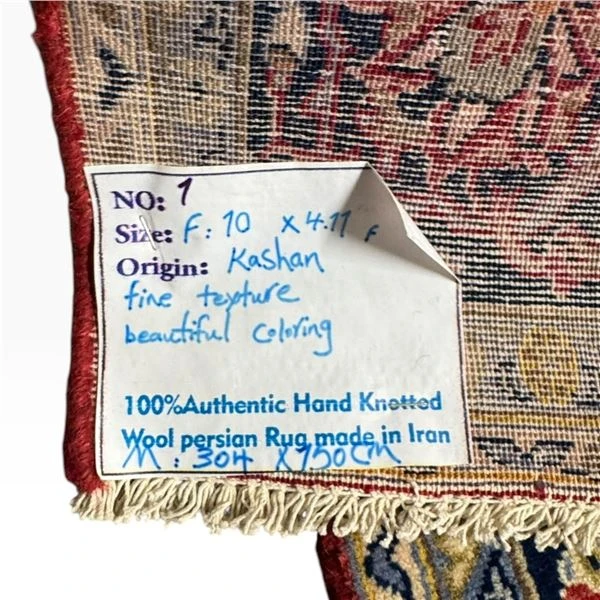 NO: 1
Size: F: 10 x 4.11 F
Origin: Kashan
fine texture
beautiful coloring
100%Authentic Hand Knotted
Wool persian Rug made in Iran
M: 304 x 150 CM